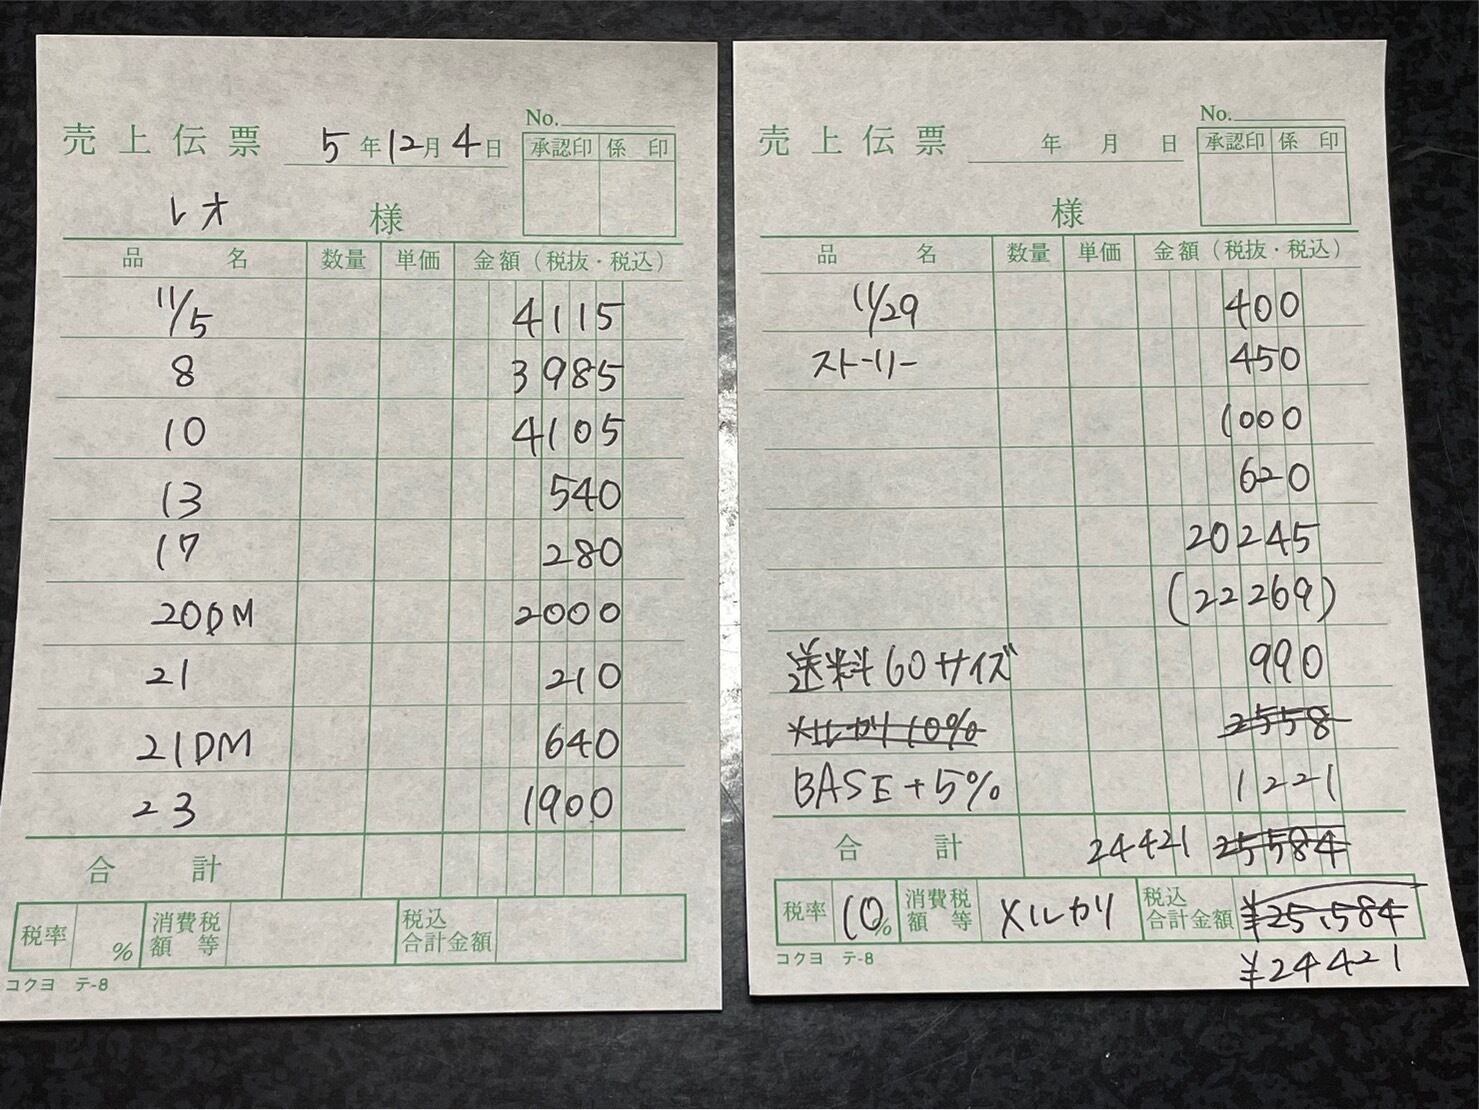 売上伝票 5年12月4日
No.
承認印 係印
レオ 様
品名 数量 単価 金額(税抜・税込)
11/5 4115
8 3985
10 4105
13 540
17 280
20DM 2000
21 210
21DM 640
23 1900
合計
税率 % 消費税額等 税込合計金額
コクヨ テ-8
売上伝票 年月日
No.
承認印 係印
様
品名 数量 単価 金額(税抜・税込)
11/29 400
ストーリー 450
1000
620
20245
(22269)
送料60サイズ 990
メルカリ10% 2558
BASE+5% 1221
合計 24421 25584
税率 10% 消費税額等 メルカリ 税込合計金額 ¥25,584
¥24421
コクヨ テ-8